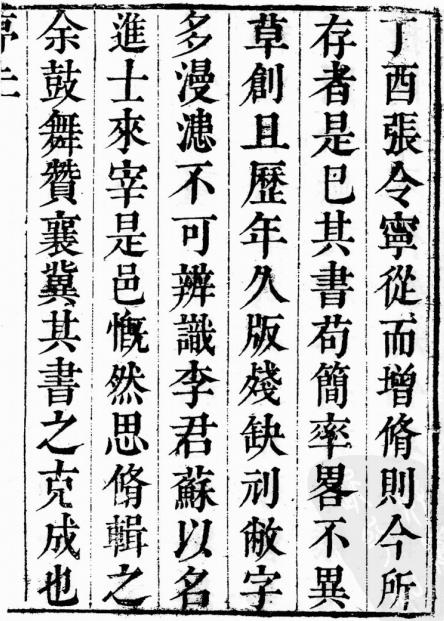 丁酉張令寧從而增脩則今所
存者是巳其書苟簡率畧不異
草創且歷年久版殘缺刓敝字
多漫漶不可辨識李君蘇以名
進士來宰是邑慨然思脩輯之
余鼓舞贊襄冀其書之克成也